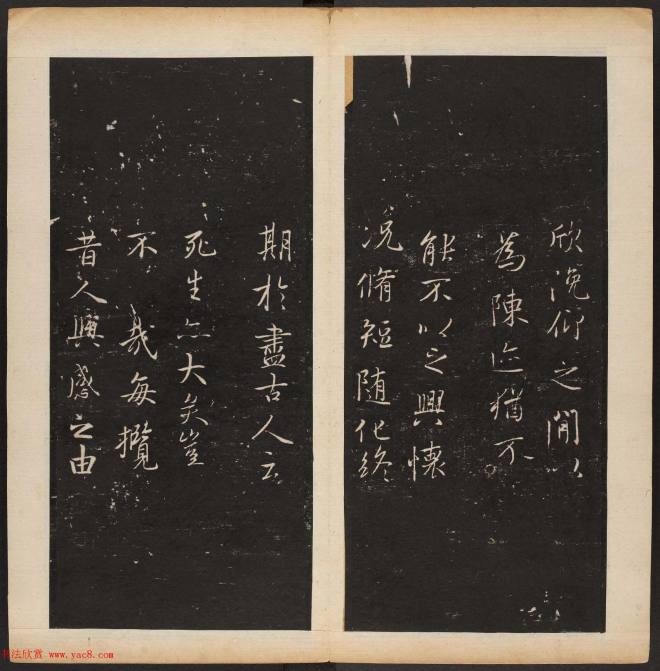 欣俛仰之閒以
為陳迹猶不
能不以之興懷
況脩短随化終
期於盡古人云
死生亦大矣豈
不 哉每攬
昔人興感之由
书法欣赏 www.yac8.com